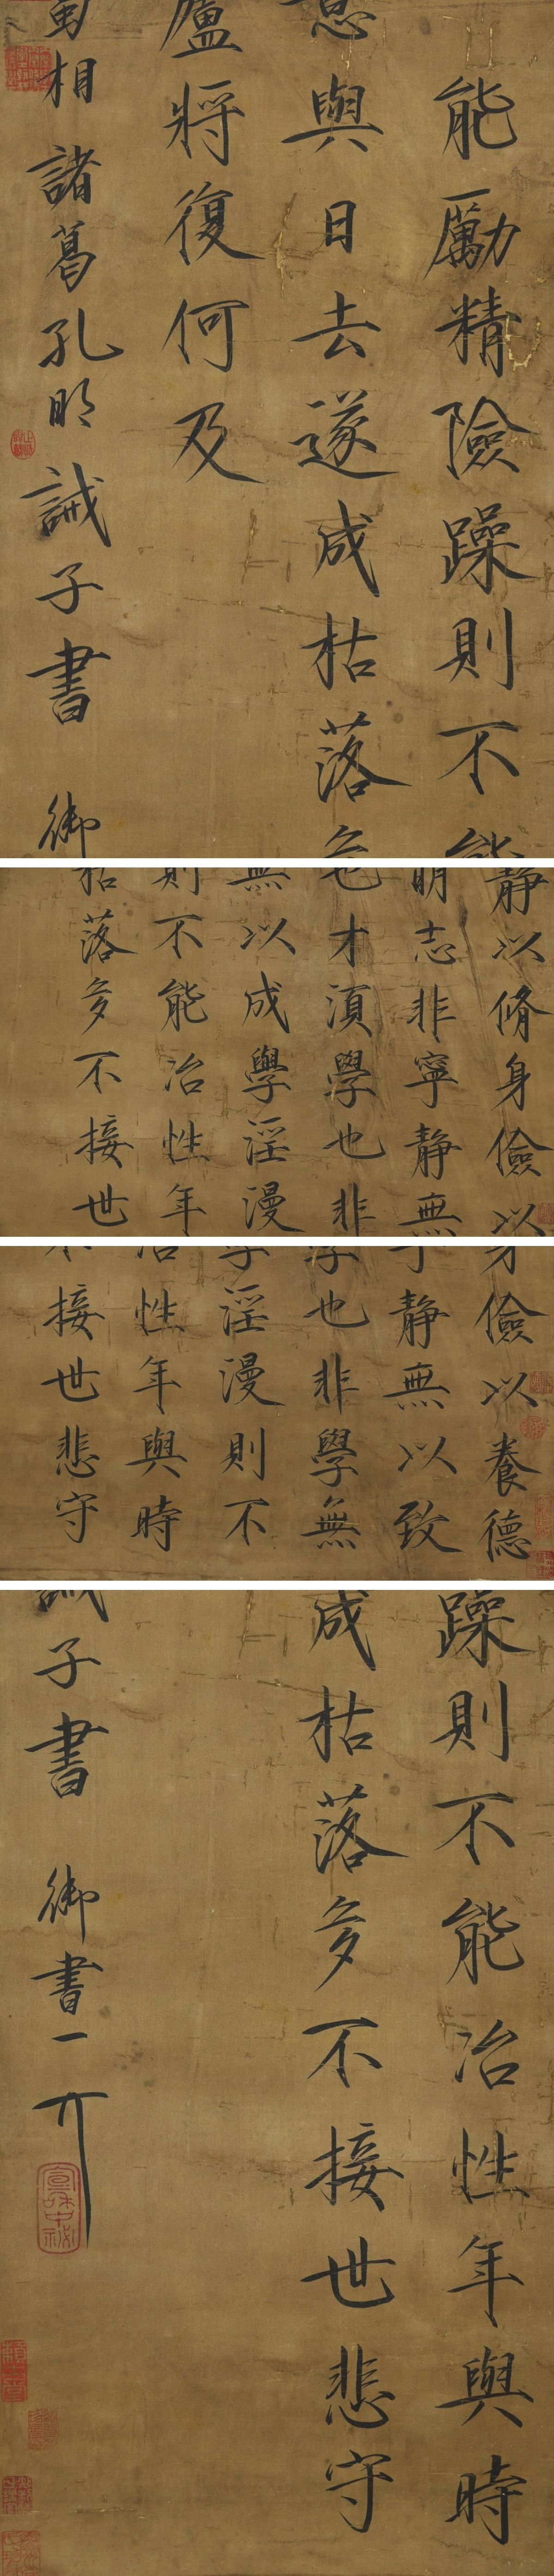 能勵精險躁則不能
意與日去遂成枯落多
廬將復何及
蜀相諸葛孔明誡子書 御
靜以脩身儉以
明志非寧靜無
也才湏學也非
無以成學淫漫
則不能冶性年
枯落多不接世
身儉以養德
寧靜無以致
學也非學無
學淫漫則不
冶性年與時
不接世悲守
躁則不能冶性年與時
成枯落多不接世悲守
誡子書 御書